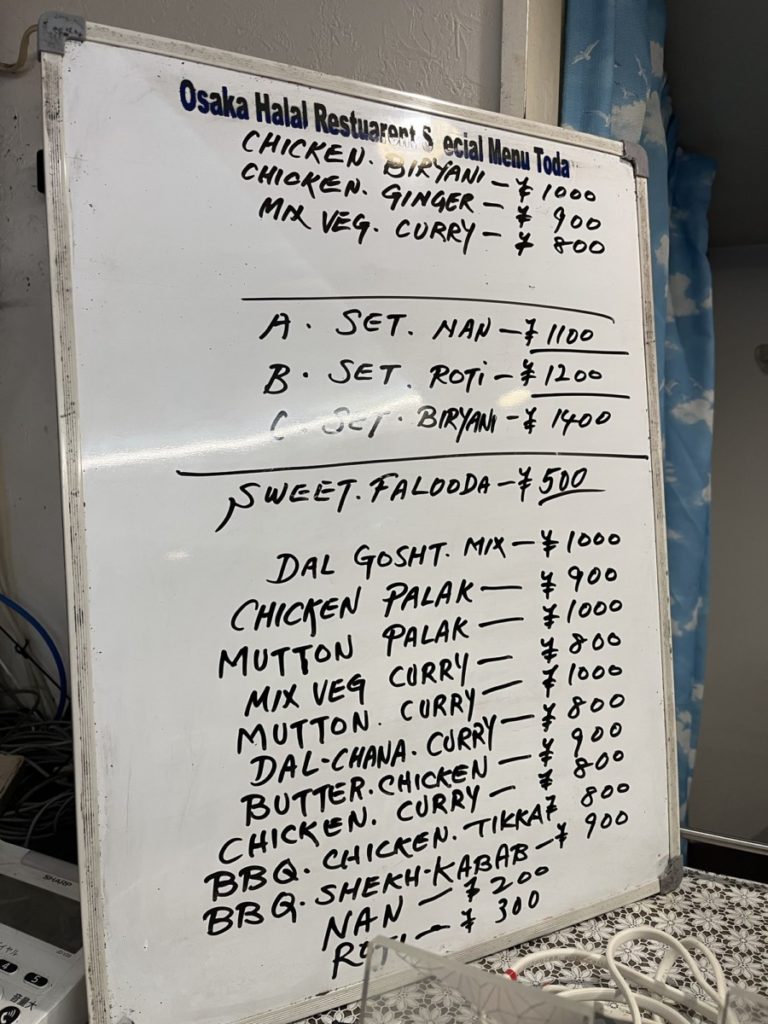 Osaka Halal Restuarent S ecial Menu Toda
CHICKEN. BIRYANI - ¥ 1000
CHICKEN. GINGER - ¥ 900
MIX VEG. CURRY - ¥ 800
A. SET. NAN - ¥ 1100
B. SET. ROTI - ¥ 1200
C. SET. BIRYANI - ¥ 1400
SWEET. FALOODA - ¥ 500
DAL GOSHT. MIX - ¥ 1000
CHICKEN PALAK - ¥ 900
MUTTON PALAK - ¥ 1000
MIX VEG CURRY - ¥ 800
MUTTON. CURRY - ¥ 1000
DAL-CHANA. CURRY - ¥ 800
BUTTER. CHICKEN - ¥ 900
CHICKEN. CURRY - ¥ 800
BBQ. CHICKEN. TIKKA ¥ 800
BBQ. SHEKH-KABAB - ¥ 900
NAN - ¥ 200
ROTI - ¥ 300
SHARP
4 5
音量大